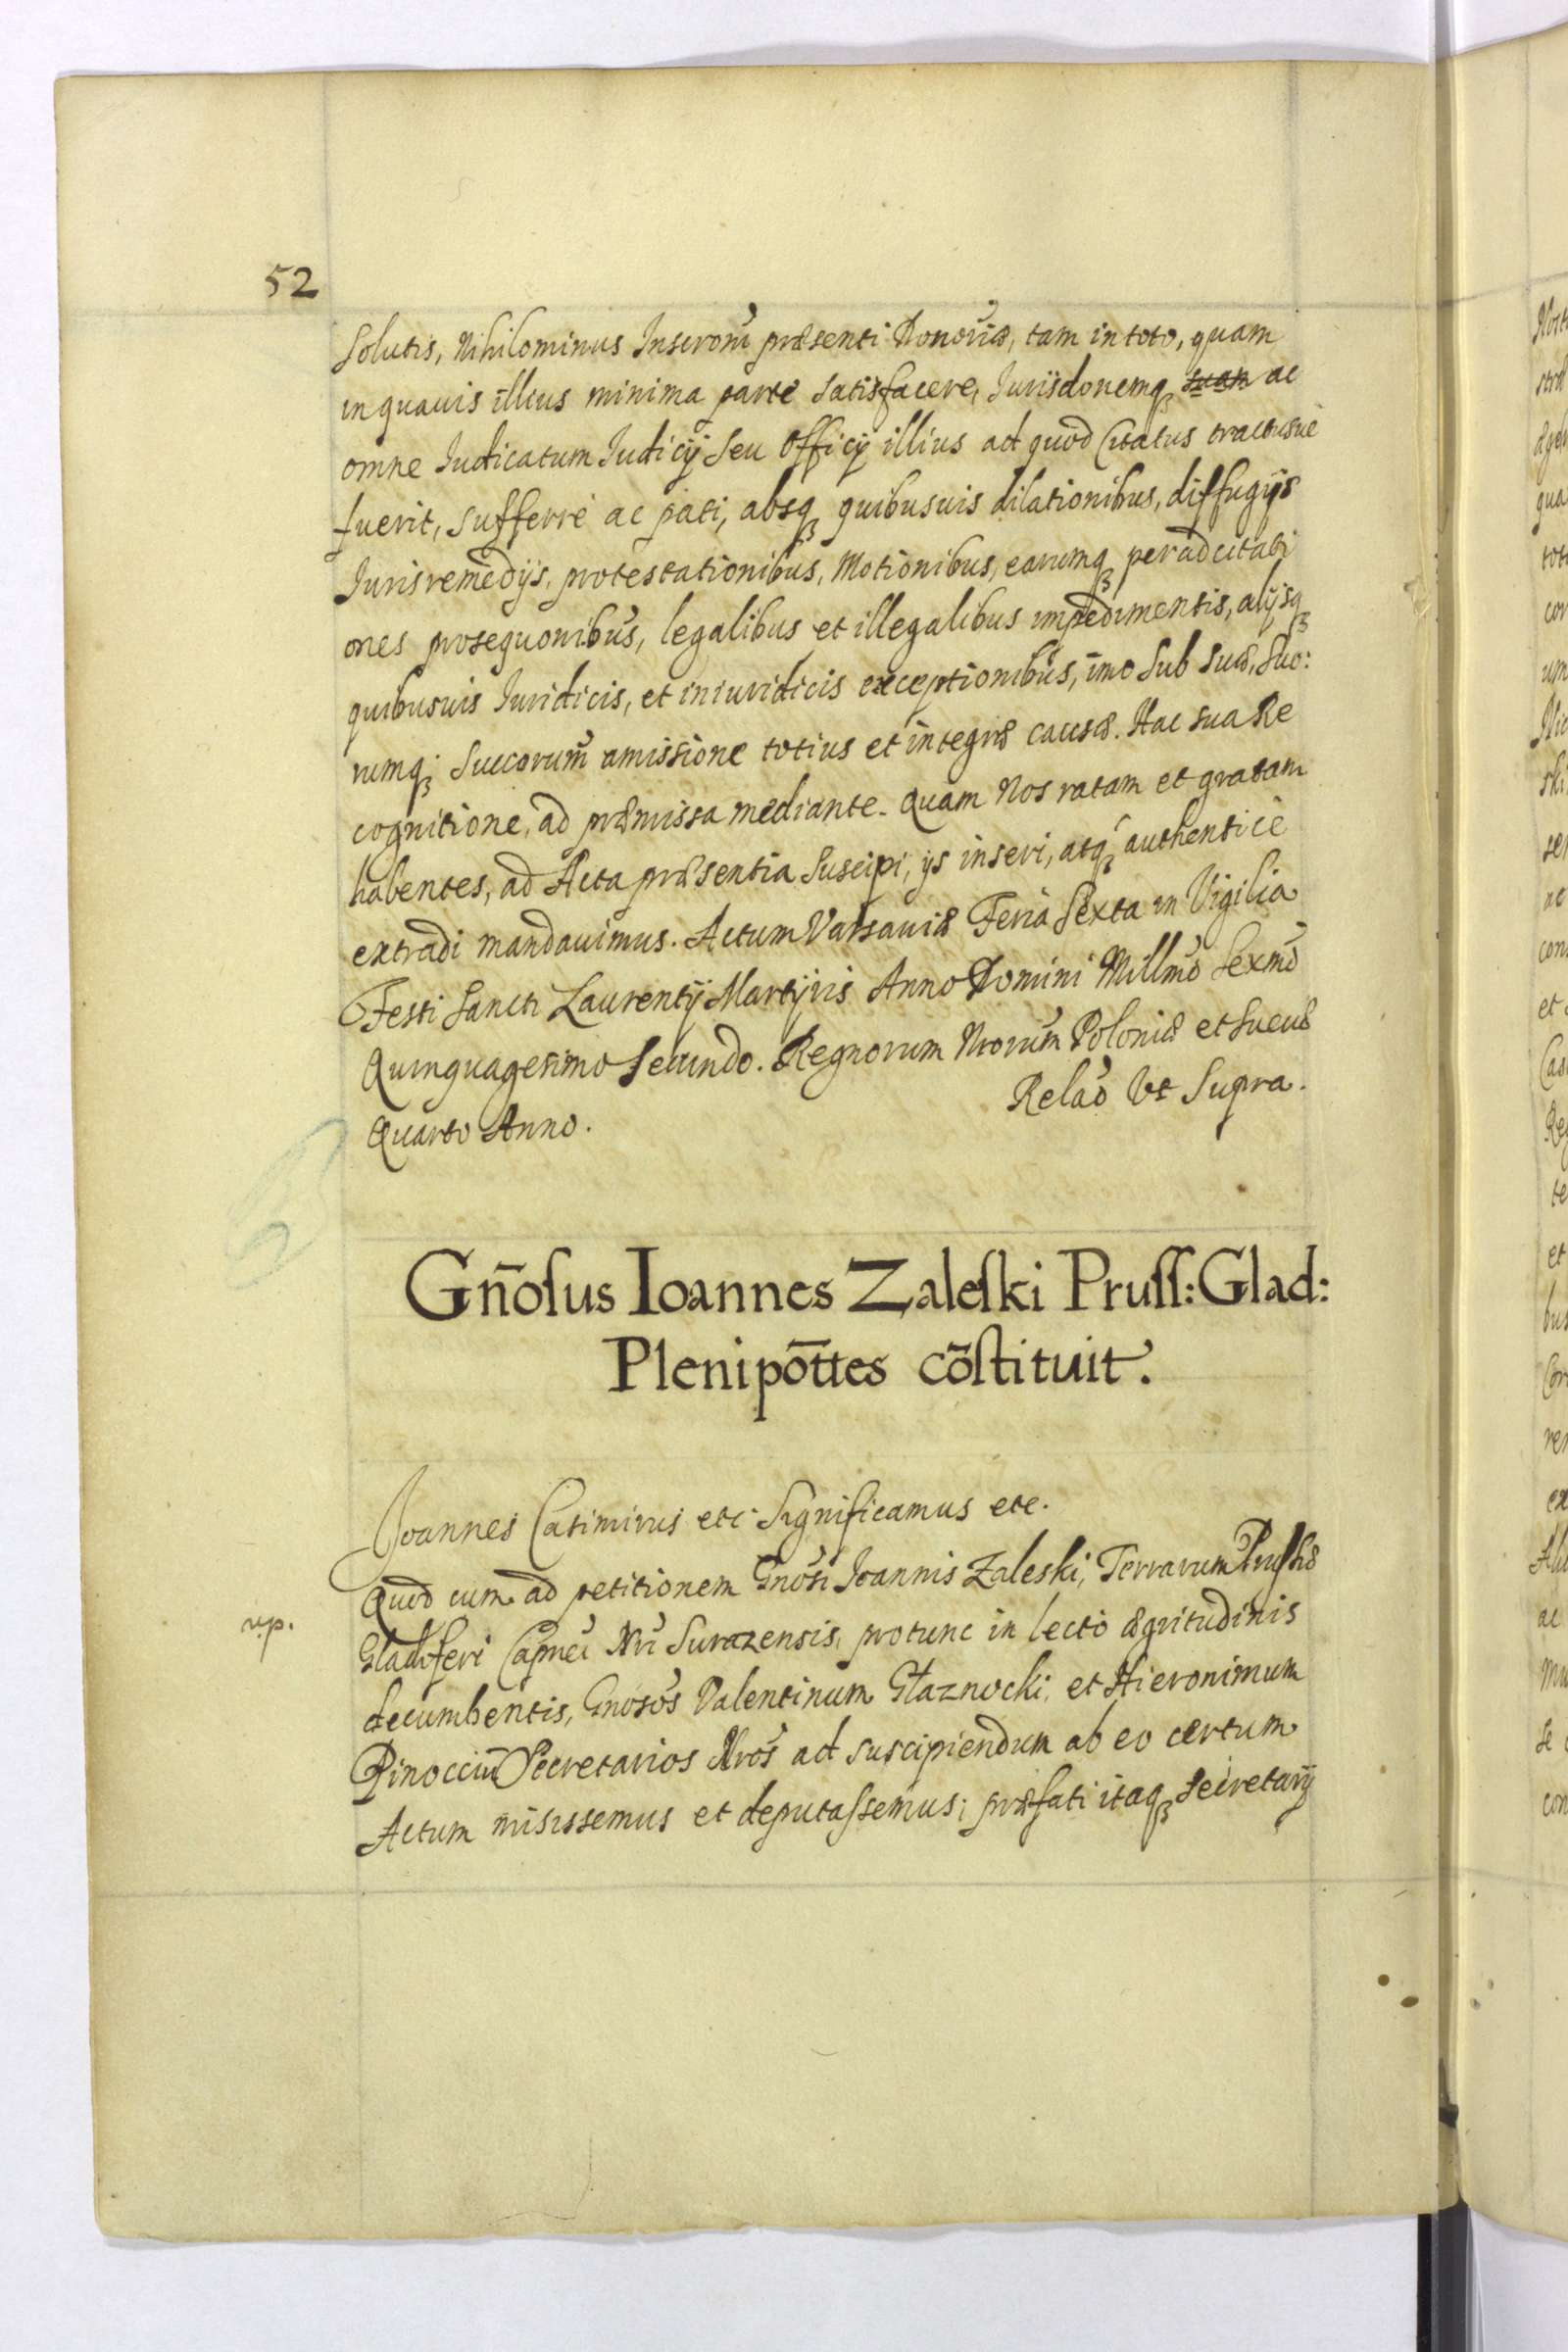 52
Solutis, Nihilominus Inscronũ præsenti Donoũiæ, tam in toto, quam
in quauis illius minima parte satisfacere, Jurisdonemqꝫ suam ac
omne Judicatum Judicij seu Officij illius ad quod Citatus tractusue
fuerit, sufferre ac pati, absqꝫ quibusuis dilationibus, diffugijs
Juris remedijs, protestationibus, Motionibus, earumqꝫ per adcitati
ones prosequonibus, legalibus et illegalibus impedimentis, alijsqꝫ
quibusuis Juridicis, et iniuridicis exceptionibus, imo sub sua, suo:
rumqꝫ Succorum amissione totius et integræ causæ. Hac sua Re
cognitione, ad præmissa mediante. Quam Nos ratam et gratam
habentes, ad Acta præsentia Suscipi, ijs inseri, atqꝫ authenticè
extradi mandauimus. Actum Varsauiæ Feria Sexta in Vigilia
Festi Sancti Laurentij Martyris Anno Domini Millmõ Sexmõ
Quinquagesimo Secundo. Regnorum Nrorum Poloniæ et Sueciæ
Quarto Anno. Relaõ Ut Supra.
Gñosus Ioannes Zaleski Pruss: Glad:
Plenipõttes cõstituit.
Joannes Casimirus etc. Significamus etc.
Quod cum ad petitionem Gnosi Joannis Zaleski, Terrarum Prussiæ
r.p.
Gladiferi Capnei Nri Surazensis, protunc in lecto ægritudinis
decumbentis, Gnosos Valentinum Głaznocki, et Hieronimum
Pinocciũ Secretarios Nros ad suscipiendum ab eo certum
Actum misissemus et deputassemus; præfati itaqꝫ Secretarij